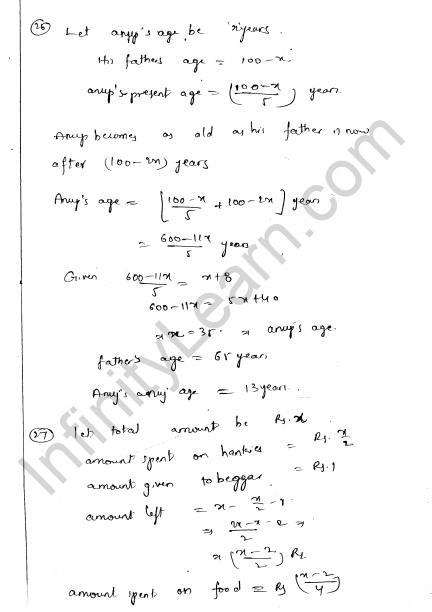 26 Let anup's age be 'x' years.
His fathers age = 100-x.
anup's present age = (100-x/5) years.
Anup becomes as old as his father is now
after (100-2x) years
Anup's age = [100-x/5 + 100-2x] years
= 600-11x/5 years
Given 600-11x/5 = x+8
600-11x = 5x+40
x = 35 anup's age.
father's age = 65 years
age = 13 years.
27 let total amount be Rs. x
amount spent on = Rs. x/2
amount given to beggar = Rs. 1
amount left = x - x/2 - 1
⇒ 2x-x-2/2 ⇒
(x-2/2) Rs.
amount spent on food = Rs (x-2/4)
InfinityLearn.com